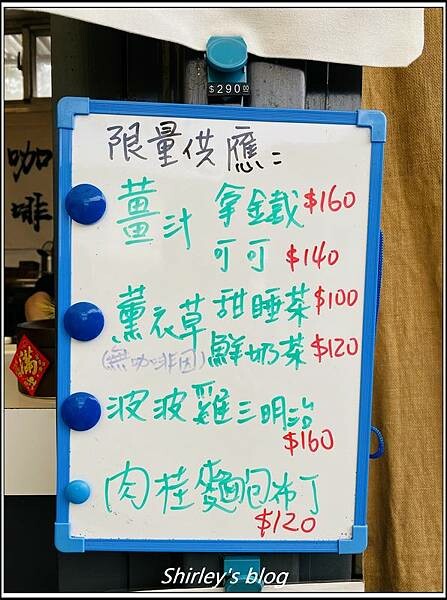 $290.00
咖啡
限量供應：
薑汁 拿鐵 $160
可可 $140
薰衣草 甜睡茶 $100
(無咖啡因) 鮮奶茶 $120
波波雞三明治
$160
肉桂麵包布丁
$120
滿
Shirley's blog